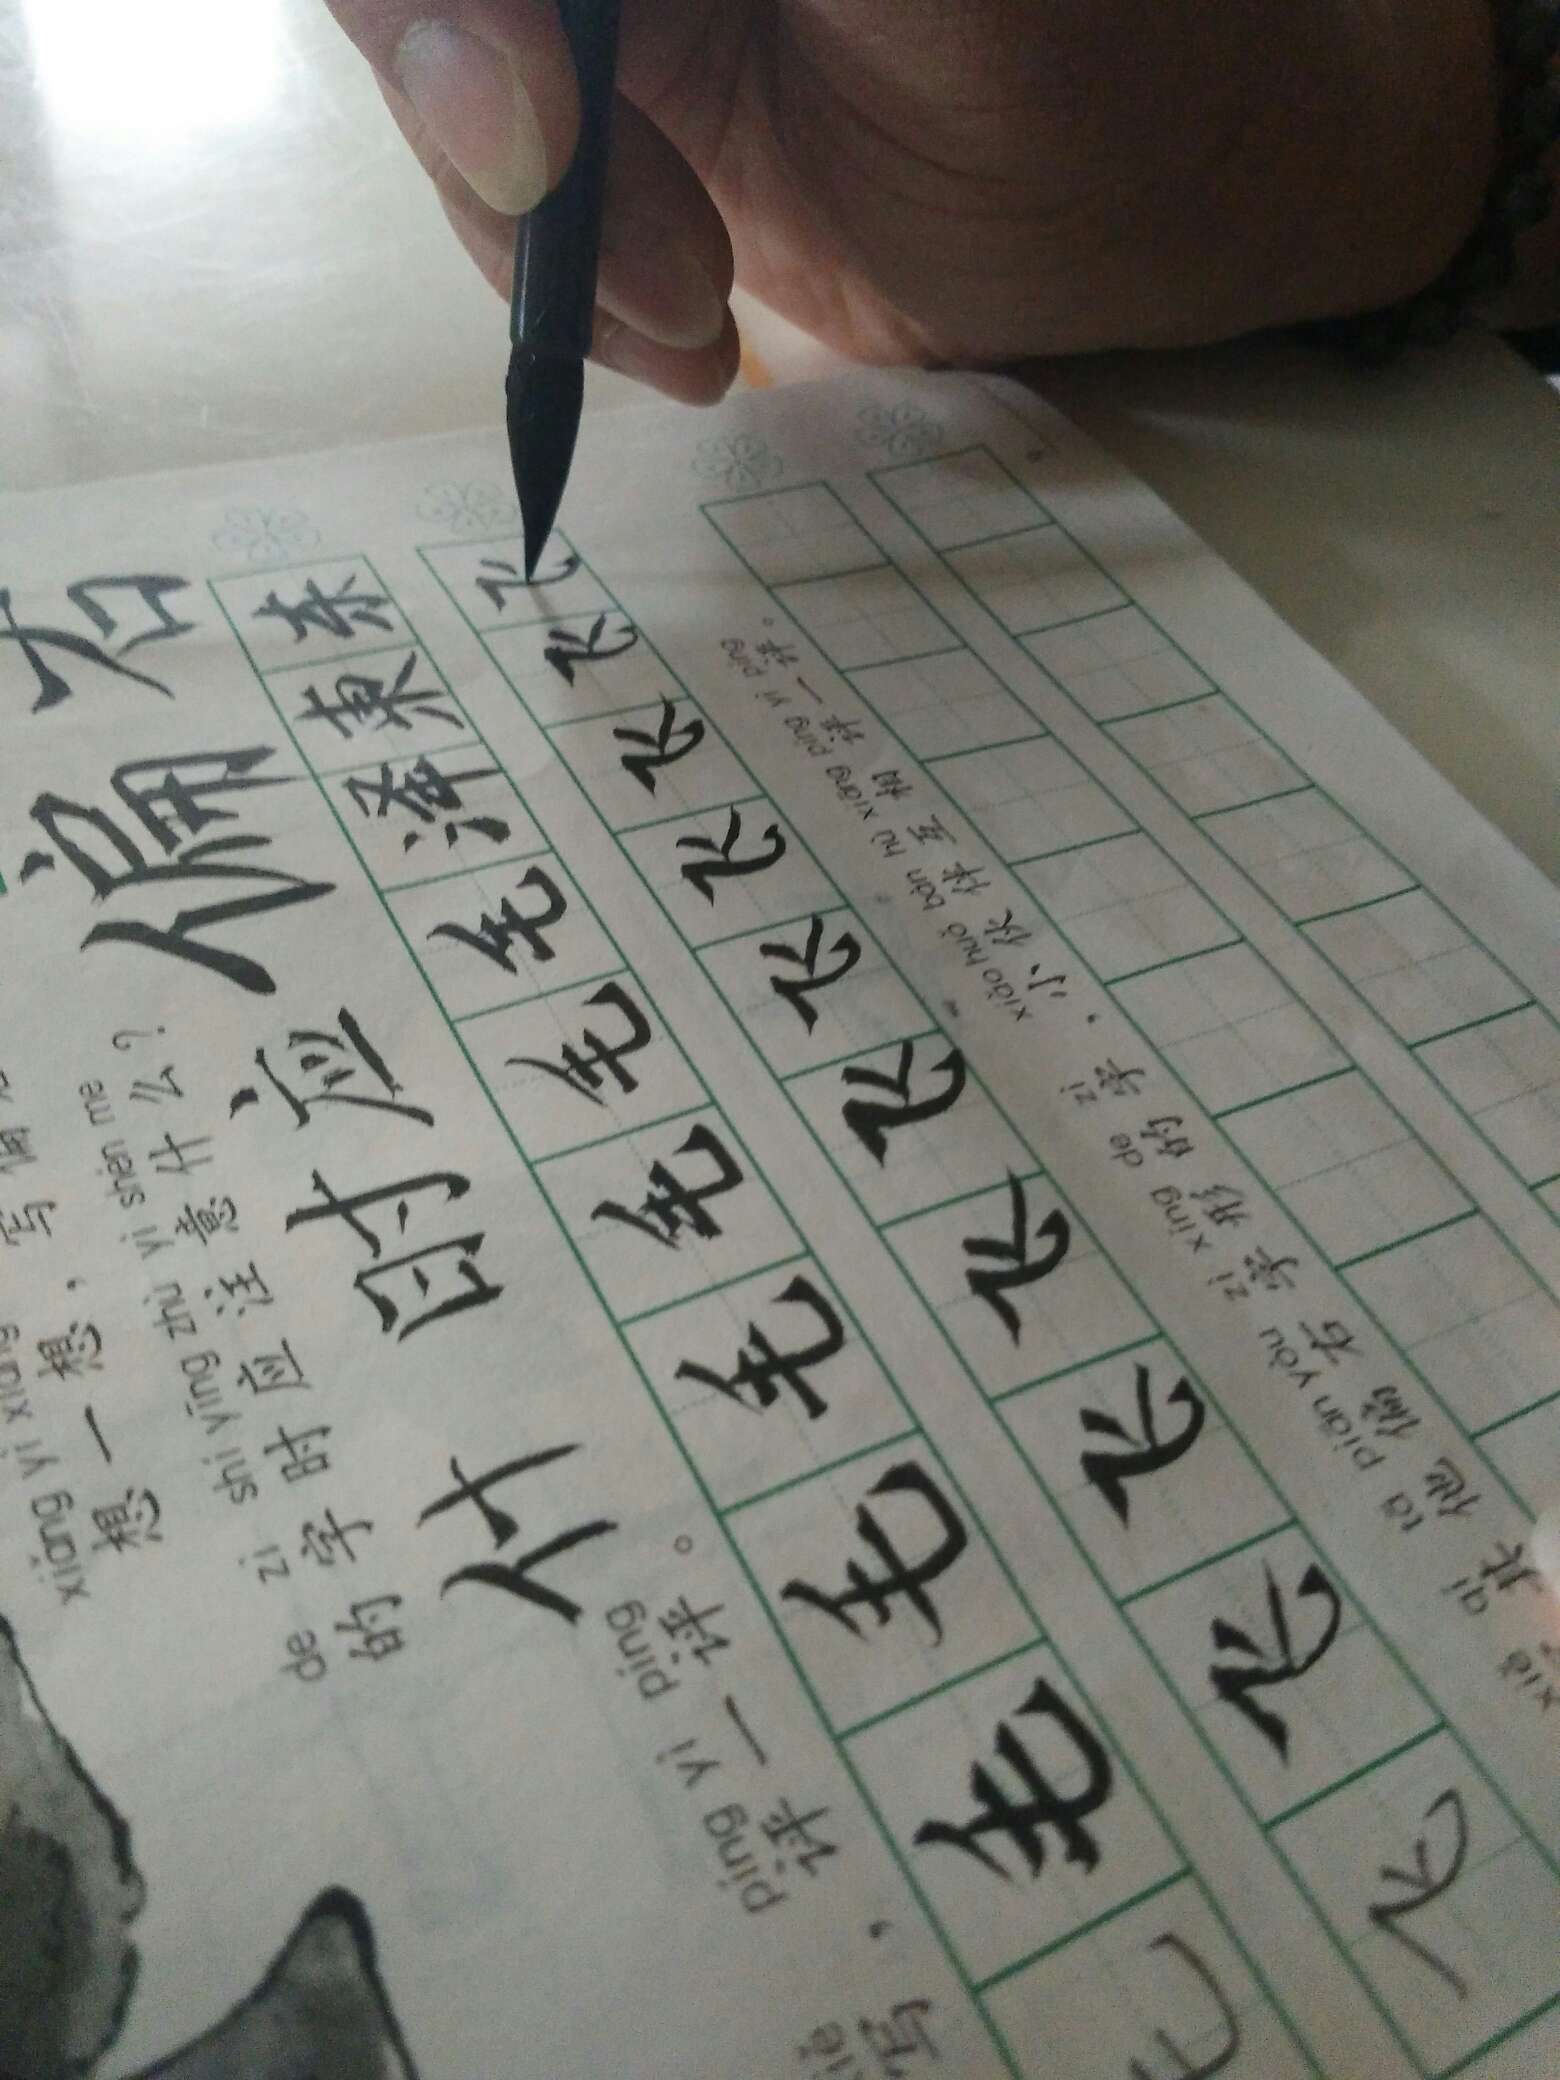 xiǎng yi xiǎng
想一想，写偏
de zì shí yīng zhù yì shén me
的字时应注意什么？
什时应偏右
xiě píng yì píng
写，评一评。
毛毛毛毛毛毛毛泽東
飞飞飞飞飞飞飞飞飞飞
xiě qí tā piān yòu zì xíng de zì xiǎo huǒ bàn hù xiāng píng yì píng
其他偏右字形的字，小伙伴互相评一评。